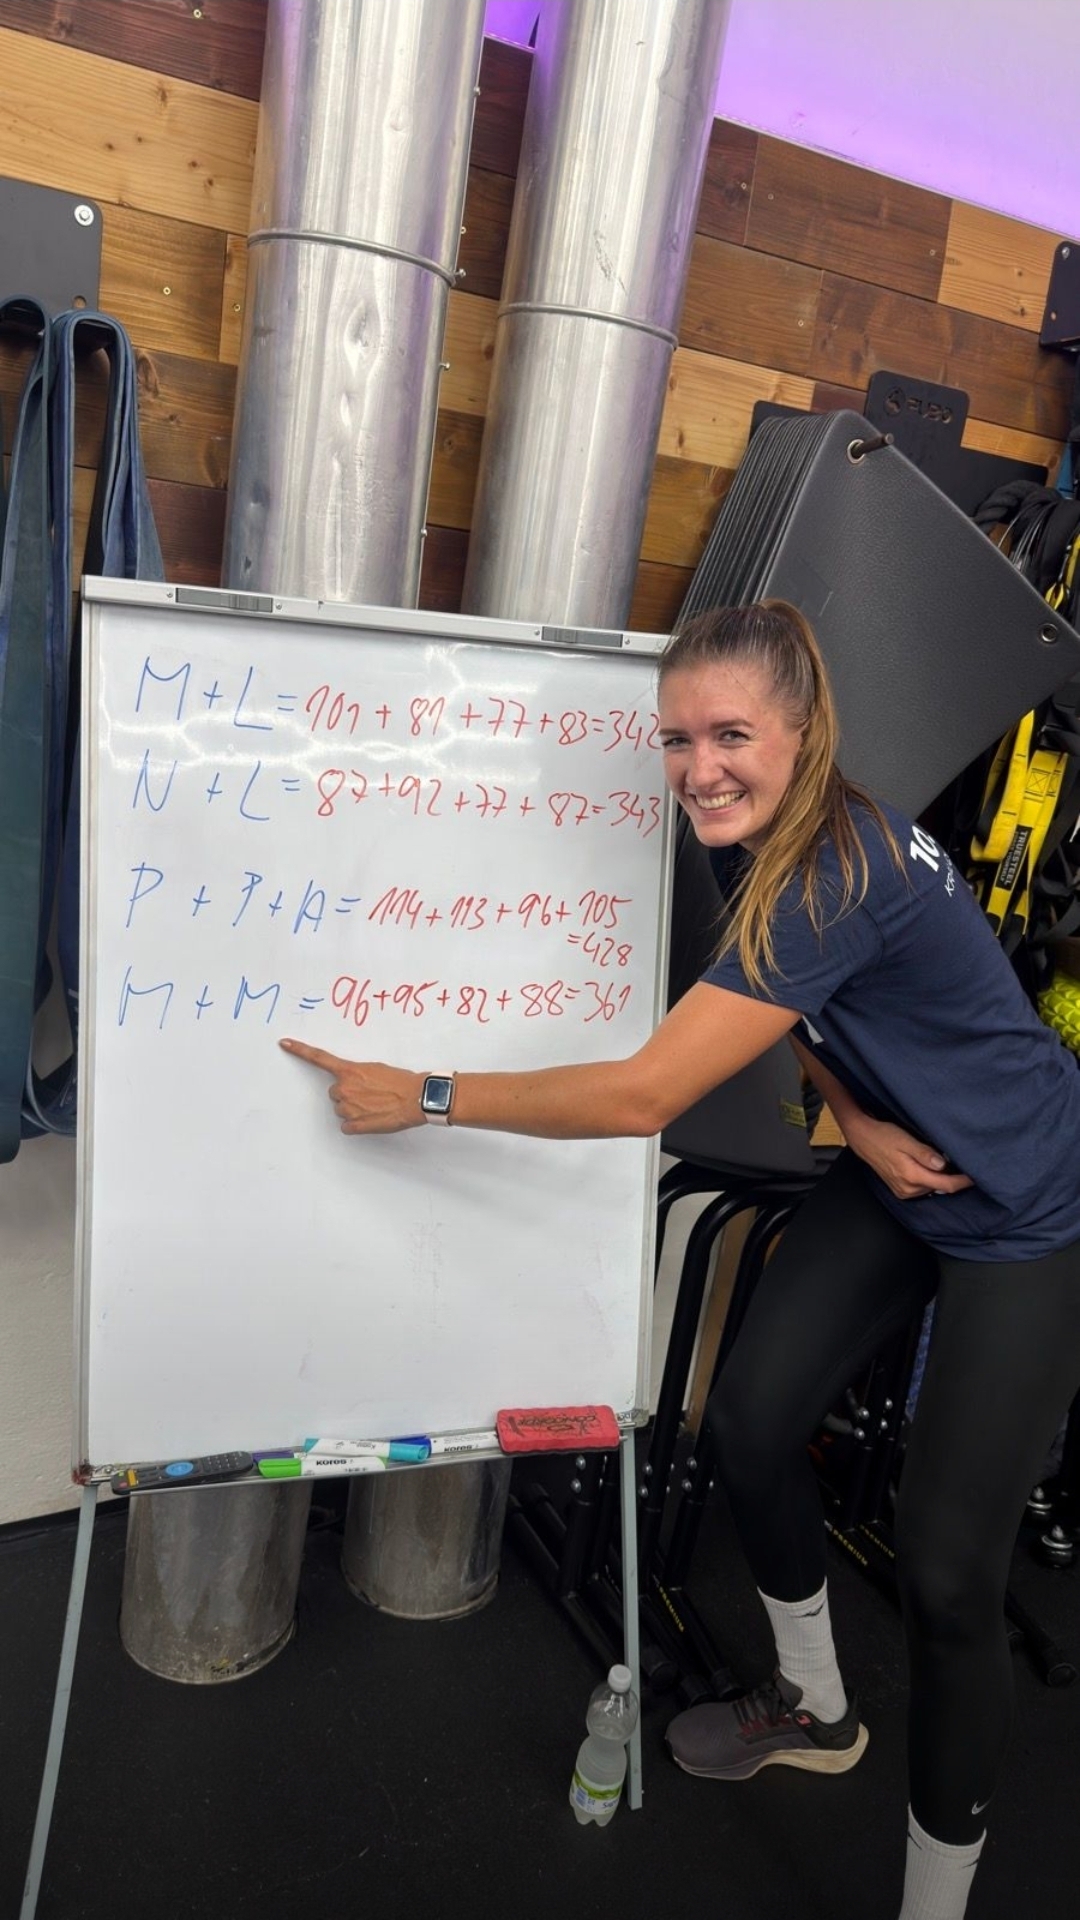 M + L = 101 + 81 + 77 + 83 = 342
N + L = 87 + 92 + 77 + 87 = 343
P + P + A = 114 + 113 + 96 + 105
= 428
M + M = 96 + 95 + 82 + 88 = 361
10.
TRUSTEEL
KORES
KORES
PREMIUM
PREMIUM
PREMIUM